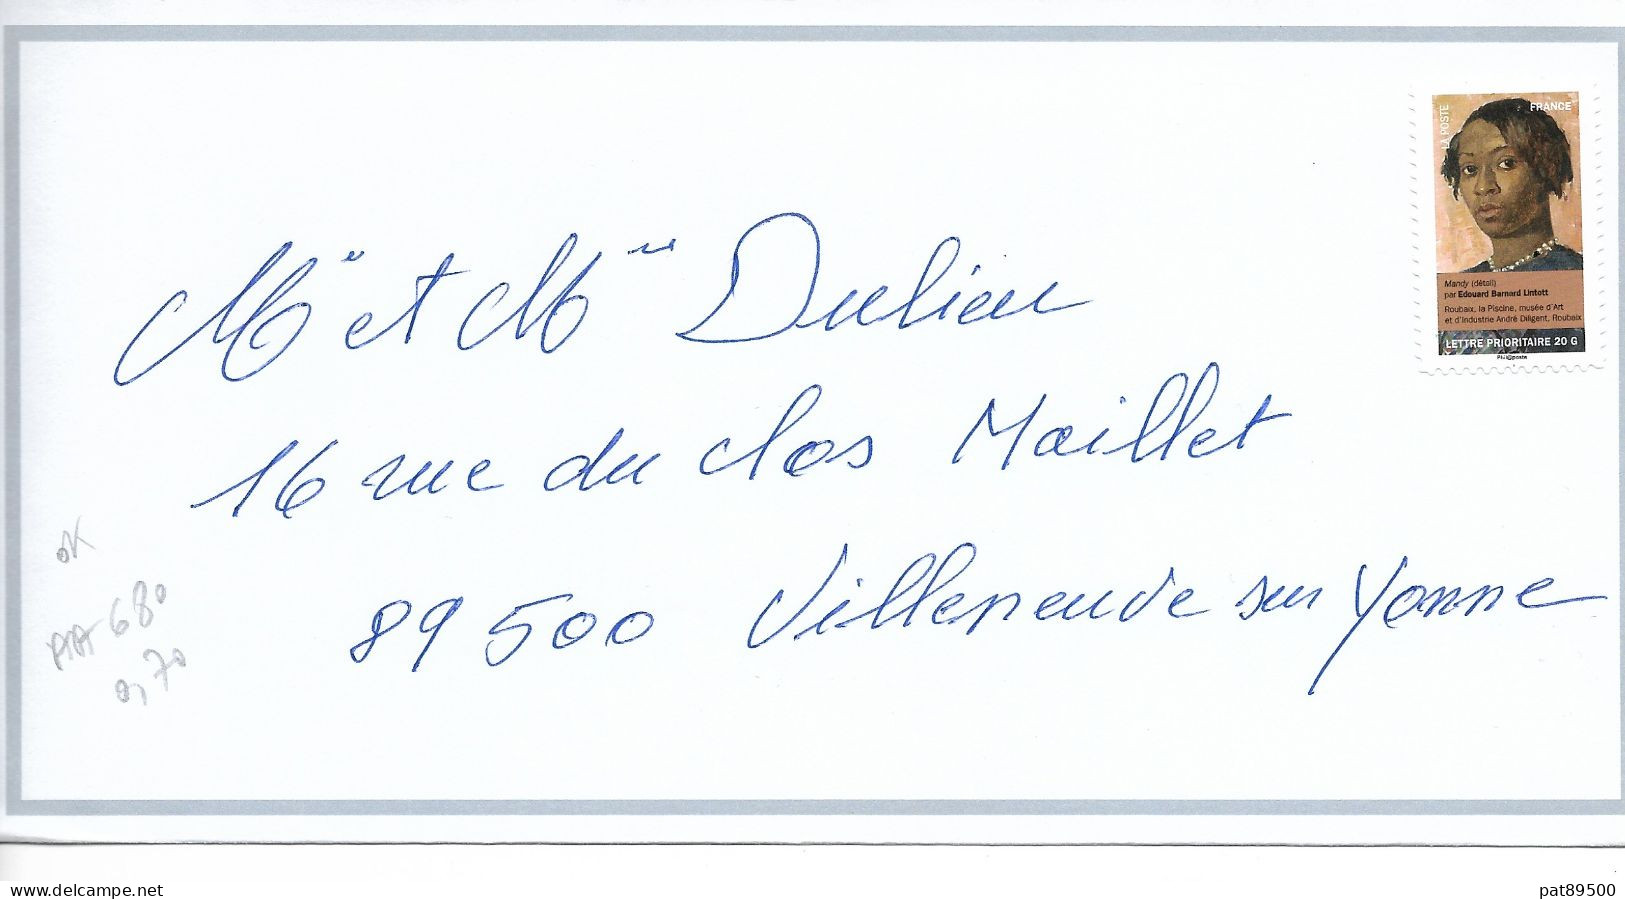 LA POSTE
FRANCE
Mandy (détail)
par Edouard Barnard Lintott
Roubaix, la Piscine, musée d'Art
et d'Industrie André Diligent, Roubaix
LETTRE PRIORITAIRE 20 G
Phil@poste
Mr et Mme Dulieu
16 rue du clos Maillet
89 500 Villeneuve sur Yonne
ok
AA 680
0,70
www.delcampe.net
pat89500